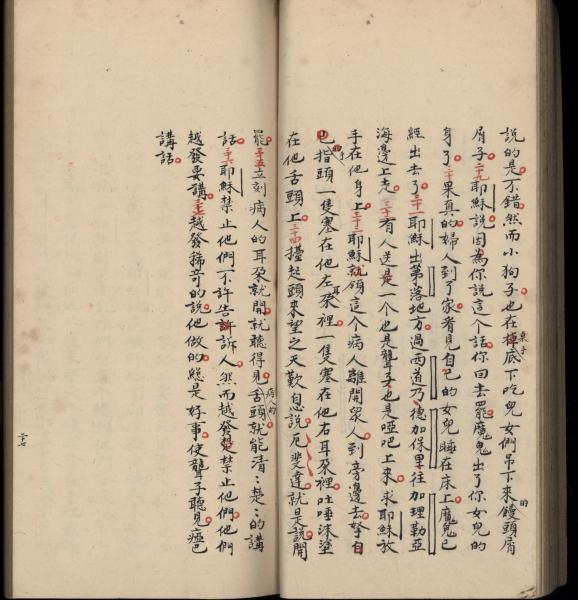 說的是。不錯然而小狗子也在桌子底下吃兒女們吊下來的饅頭屑
屑子。二十九耶穌說因為你說這个話你回去罷魔鬼出了你女兒的
身了。三十果真的婦人到了家看見自己的女兒睡在床上。魔鬼已
經出去了。三十一耶穌出第落地方過西道乃德加保里往加理勒亞
海邊上走。三十二有人送是一个也是聾子也是啞吧上來。求耶穌放
手在他身上。三十三耶穌就領這个病人離開眾人到旁邊去。拏自
己指頭一隻塞在他左耳朶裡一隻塞在他右耳朶裡。吐唾沫塗
在他舌頭上。三十四擡起頭來望之天歎息說厄斐達就是說開
罷。三十五立刻病人的耳朶就開就聽得見。病人的舌頭就能清:楚:的講
話。三十六耶穌禁止他們不許告訴人。然而越發禁止他們。他們
越發要講。三十七越發稀奇的說他做的總是好事。使聾子聽見。瘂巴
講話。